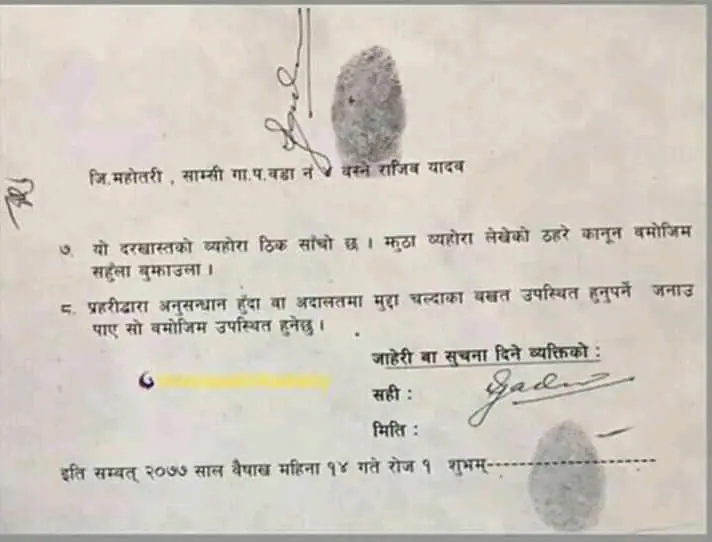 जि.महोतरी , साम्सी गा.प.वडा नं ४ वस्ने राजिव यादव
७. यो दरखास्तको व्यहोरा ठिक साँचो छ । झुठा व्यहोरा लेखेको ठहरे कानून वमोजिम
सहुँला वुझाउला ।
८. प्रहरीद्वारा अनुसन्धान हुँदा वा अदालतमा मुद्दा चल्दाका वखत उपस्थित हुनुपर्ने जनाउ
पाए सो वमोजिम उपस्थित हुनेछु ।
जाहेरी बा सुचना दिने व्यक्तिको :
सही : Yadav
मिति :
इति सम्वत् २०७७ साल वैषाख महिना १४ गते रोज १ शुभम्------------------